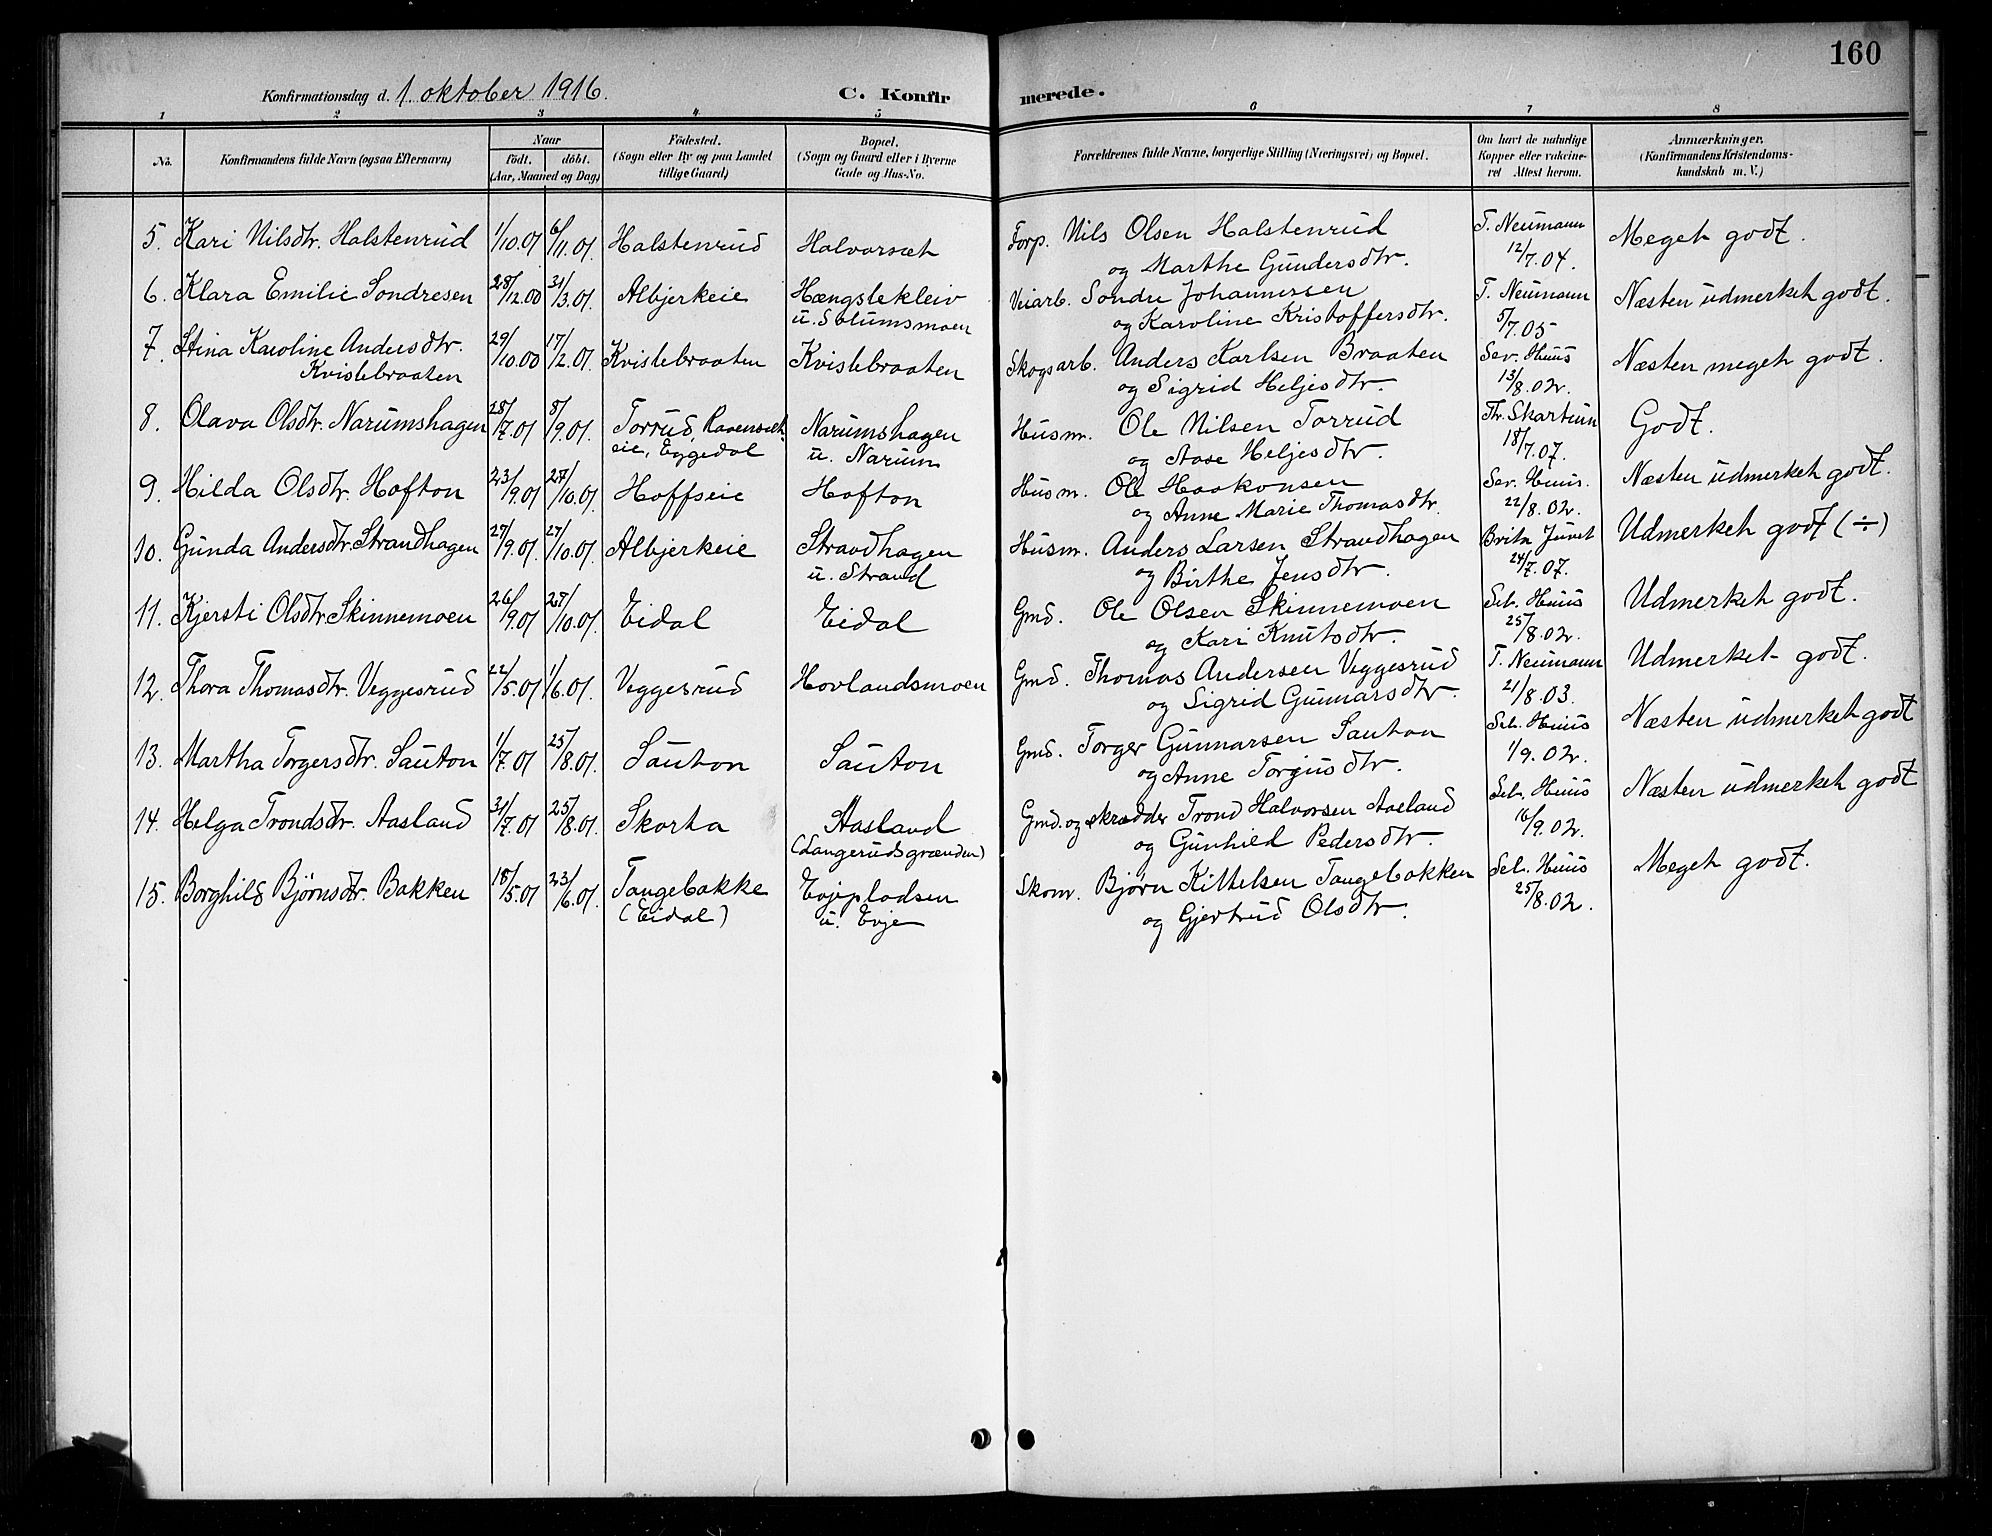 160
Konfirmationsdag d. 1. oktober 1916. C. Konfirmerede.
1 2 3 4 5 6 7 8
No. Konfirmandens fulde Navn (ogsaa Efternavn) Naar født. døbt. (Aar, Maaned og Dag) Fødested. (Sogn eller By og paa Landet tillige Gaard) Bopæl. (Sogn og Gaard eller i Byerne Gade og Hus-No. Forældrenes fulde Navne, borgerlige Stilling (Næringsvei) og Bopæl. Om havt de naturlige Kopper eller vakcineret Attest herom. Anmærkninger. (Konfirmandens Kristendomskundskab m. V.)
5. Kari Nilsdtr. Halstenrud 1/10.01 6/11.01. Halstenrud Halvorsæt Forp. Nils Olsen Halstenrud T. Neumann Meget godt.
og Marthe Gundersdtr. 12/7.04.
6. Klara Emilie Sondresen 28/12.00 31/3.01. Albjerkeie Hængslekleiv Veiarb. Sondre Johannessen T. Neumann Næsten udmerket godt.
u. Solumsmoen og Karoline Kristoffersdtr. 5/7.05
7. Stina Karoline Andersdtr. 29/10.00 17/2.01. Kvislebraaten Kvislebraaten Skogsarb. Anders Karlsen Braaten Sev. Huus Næsten meget godt.
Kvislebraaten og Sigrid Heljesdtr. 13/8.02.
8. Olava Olsdtr. Narumshagen 28/7.01 8/9.01. Torrud, Ravnsæt- Narumshagen Husm. Ole Nilsen Torrud Th. Skartum Godt.
eie, Eggedal u. Narum og Aase Heljesdtr. 18/7.07.
9. Hilda Olsdtr. Hofton 23/9.01 27/10.01. Hoffseie Hofton Husm. Ole Haakonsen Sev. Huus. Næsten udmerket godt.
og Anne Marie Thomasdtr. 22/8.02.
10. Gunda Andersdtr. Strandhagen 27/9.01 27/10.01. Albjerkeie Strandhagen Husm. Anders Larsen Strandhagen Brita Juvet Udmerket godt (÷)
u. Strand og Birthe Jensdtr. 24/7.07.
11. Kjersti Olsdtr. Skinnemoen 26/9.01 27/10.01. Eidal Eidal Gmd. Ole Olsen Skinnemoen Seb. Huus Udmerket godt.
og Kari Knutsdtr. 25/8.02.
12. Thora Thomasdtr. Veggesrud 22/5.01 1/6.01. Veggesrud Hovlandsmoen Gmd. Thomas Andersen Veggesrud T. Neumann Udmerket godt.
og Sigrid Gunnarsdtr. 21/8.03.
13. Martha Torgersdtr. Sauton 1/7.01 25/8.01. Sauton Sauton Gmd. Torger Gunnarsen Sauton Seb. Huus Næsten udmerket godt
og Anne Torgusdtr. 1/9.02.
14. Helga Trondsdtr. Aasland 31/7.01 25/8.01. Skorta Aasland Gmd. og skrædder Trond Halvorsen Aasland Seb. Huus Næsten udmerket godt
(Langerudsgrænden) og Gunhild Pedersdtr. 16/9.02.
15. Borghild Bjørnsdtr. Bakken 18/5.01 23/6.01. Tangebakke Evjepladsen Skom. Bjørn Kittelsen Tangebakken Seb. Huus Meget godt.
(Eidal) u. Evje og Gjertrud Olsdtr. 25/8.02.